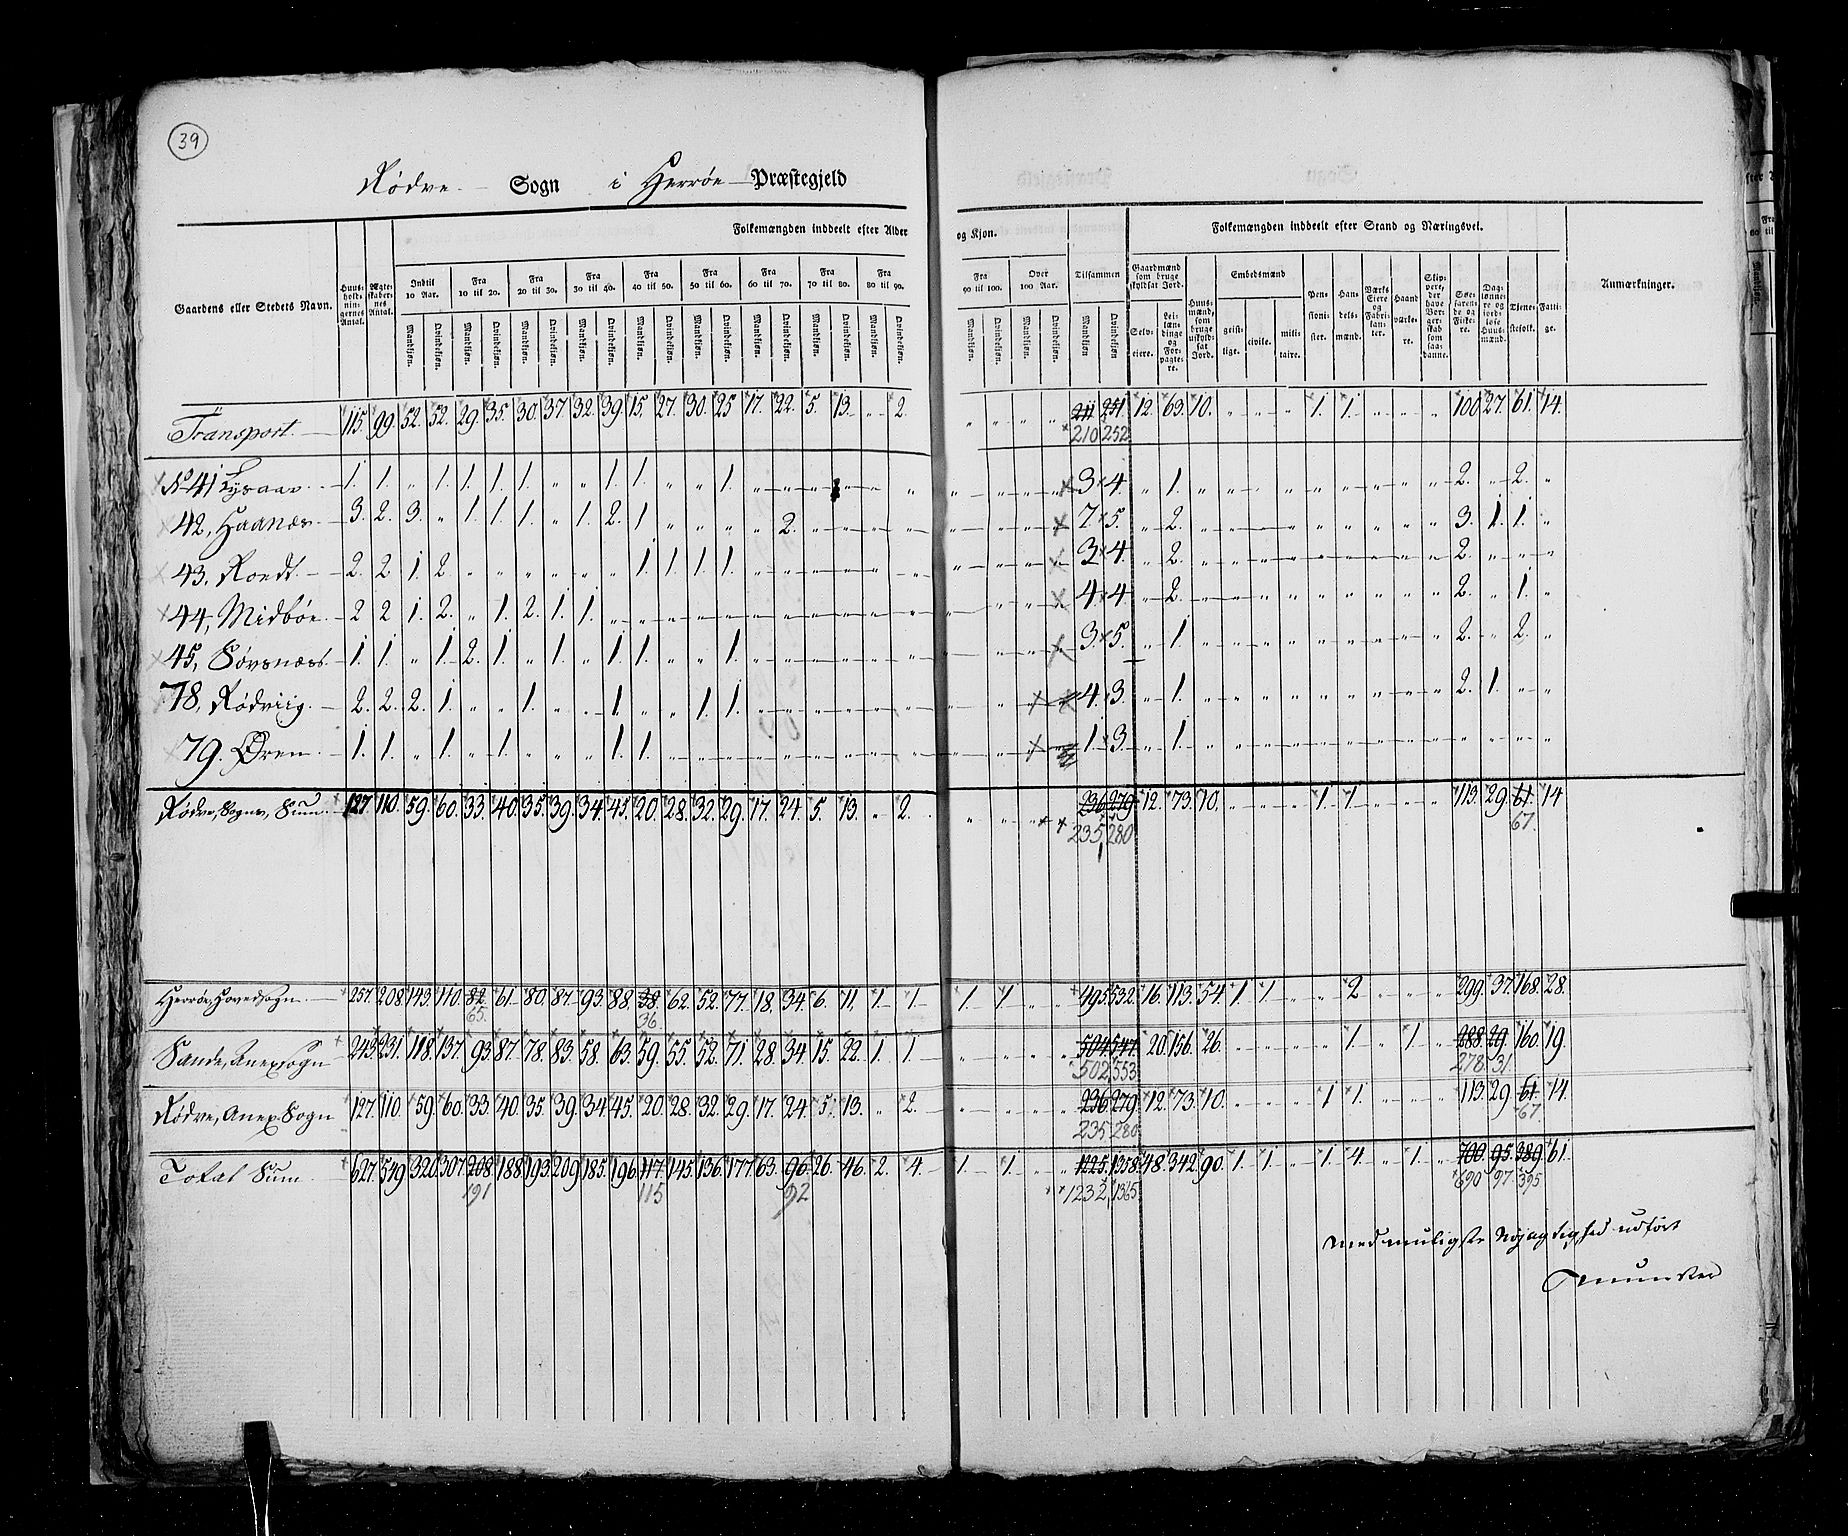 39
Rödve Sogn i Herröe Præstegjeld
Folkemængden inddeelt efter Alder og Kjøn.
Folkemængden inddeelt efter Stand og Næringsvei.
Gaardens eller Stedets Navn.
Huusholdningernes Antal.
Ægteskabernes Antal.
Indtil 10 Aar.
Fra 10 til 20.
Fra 20 til 30.
Fra 30 til 40.
Fra 40 til 50.
Fra 50 til 60.
Fra 60 til 70.
Fra 70 til 80.
Fra 80 til 90.
Fra 90 til 100.
Over 100 Aar.
Tilsammen
Mandkjøn. Qvindekjøn.
Gaardmænd som bruge skyldsat Jord.
Selveiere.
Leilændinge og Forpagtere.
Huusmænd, som bruge uskyldsat Jord.
Embedsmænd
geistlige. civile. militaire.
Pensionister.
Handelsmænd.
Værks Eiere og Fabrikanter.
Haandværkere.
Skippere, der have Borgerskab som saadanne.
Søefarende og Fiskere.
Daglønnere og jordløse Huusmænd.
Tjenestefolk.
Fattige.
Anmærkninger.
Transport. 115. 99. 52. 52. 29. 35. 30. 37. 32. 39. 15. 27. 30. 25. 17. 22. 5. 13. „ 2. „ „ „ „ 211 251 12. 63. 10. „ „ „ 1. 1. „ „ „ 100 27. 61. 14.
210 252
No 41 Lysaae. 1. 1. „ 1. 1. 1. 1. „ „ 1. 1. „ „ 1. „ „ „ „ „ „ „ „ „ 3 4. „ 1. „ „ „ „ „ „ „ „ „ 2. „ 2. „
42, Haanæs. 3. 2. 3. „ 1. 1. 1. „ 1. 2. 1 „ „ „ „ 2. „ „ „ „ „ „ „ 7 5. „ 2. „ „ „ „ „ „ „ „ „ 3. 1. 1. „
43. Roedt. 2. 2 1. 2. „ „ „ „ „ „ 1. 1. 1. 1. „ „ „ „ „ „ „ „ „ 3 4. „ 2. „ „ „ „ „ „ „ „ „ 2. „ „ „
44, Midböe. 2 2 1. 2. „ 1. 2. 1. 1. „ „ „ „ „ „ „ „ „ „ „ „ „ „ 4 4 „ 2. „ „ „ „ „ „ „ „ „ 2. „ 1. „
45, Sövsnæs. 1. 1. „ 1. 2. 1. „ 1. „ 1. 1. „ „ 1. „ „ „ „ „ „ „ „ „ 3. 5. „ 1. „ „ „ „ „ „ „ „ „ 2. „ 2. „
78, Rödviig. 2. 2. 2. 1. „ „ 1. „ „ 1. „ „ 1. 1. „ „ „ „ „ „ „ „ „ 4. 3. „ 1. „ „ „ „ „ „ „ „ „ 2. 1. „ „
79. Ören. 1. 1. „ 1. „ 1. „ „ „ 1. 1. „ „ „ „ „ „ „ „ „ „ „ „ 1. 3. „ 1. „ „ „ „ „ „ „ „ „ „ „ „ „
Rödve, Sogns, Sum. 127. 110. 59. 60. 33. 40. 35. 39. 34. 45. 20. 28. 32. 29. 17. 24. 5. 13. „ 2. „ „ 236 279 12. 73. 10. „ „ „ 1 1. „ „ „ 113. 29. 61. 14
235, 280 67.
Herröe, Hovedsogn. 257. 208. 143. 110. 82. 61. 80. 87. 93. 88. 38. 62. 52. 77. 18. 34. 6. 11. 1. 1. 1. 1. „ „ 495. 532. 16. 113. 54. 1. 1. „ „ 2 „ „ „ 299. 37. 168. 28.
65. 36.
Sande, Anexsogn 243. 231. 118. 137. 93. 87. 78. 83. 58. 63. 59. 55. 52. 71. 28. 34. 15. 22. 1. 1. „ „ „ „ 504. 547. 20. 156. 26. „ „ „ „ 1. „ 1. „ 288. 29. 160. 19.
502, 553 278. 31.
Rödve, Anex Sogn 127. 110. 59. 60. 33. 40. 35. 39. 34. 45. 20. 28. 32. 29. 17. 24. 5. 13. „ 2. „ „ „ „ 236 279 12. 73. 10. „ „ „ 1 1. „ „ „ 113. 29 61. 14
235 280 67
Total Sum. 627. 549. 320. 307. 208. 188. 193. 209. 185. 196. 117. 145. 136. 177. 63. 90. 26. 46. 2. 4. 1. 1. „ „ 1225. 1358. 48. 342. 90. 1. 1. „ 1. 4. „ 1. „ 700 95. 389 61.
191 115 92 1232, 1365 690 97. 395
med muligste Nøjagtighed udført